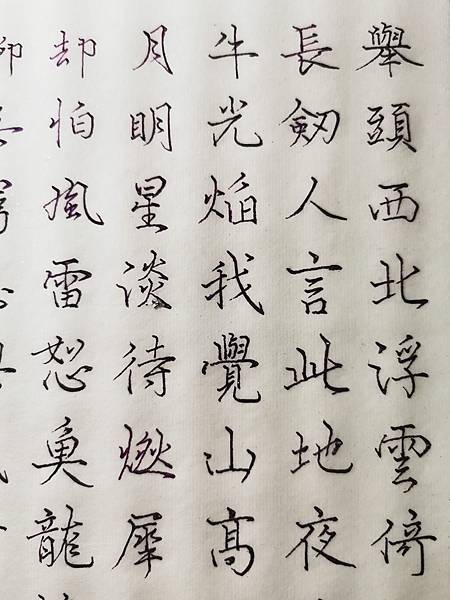 舉頭西北浮雲倚
長劍人言此地夜
牛光焰我覺山高
月明星淡待燃犀
却怕風雷恕魚龍